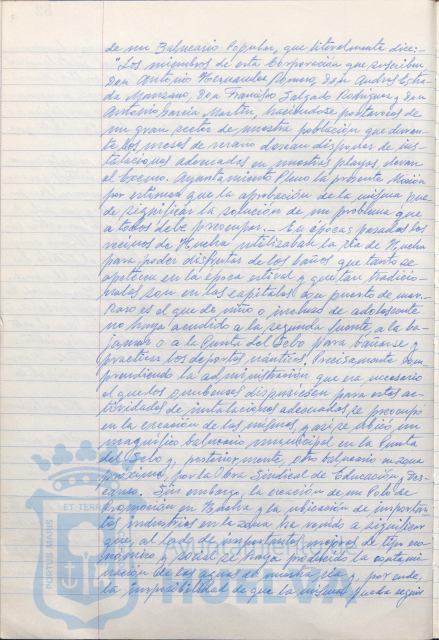 de un Balneario Popular, que literalmente dice:-
"Los miembros de esta Corporación que suscriben
Don Antonio Hernandez Romero, Don Andrés Estra-
da Manzano, Don Francisco Salgado Rodríguez y Don
Antonio García Martín, haciéndose portavoces de
un gran sector de nuestra población que duran-
te los meses de verano desean disponer de ins-
talaciones adecuadas en nuestras playas, elevan
al Excmo. Ayuntamiento Pleno la presente Moción
por estimar que la aprobación de la misma pue-
de significar la solución de un problema que
a todos debe preocupar.- En épocas pasadas los
vecinos de Huelva utilizaban la ría de Huelva
para poder disfrutar de los baños que tanto se
apetecen en la época estival y que tan tradicio-
nales son en las capitales con puerto de mar.-
Raro es el que de niño o incluso de adolescente
no haya acudido a la segunda fuente, a la ba-
jamar o a la Punta del Sebo para bañarse y
practicar los deportes náuticos. Precisamente com-
prendiendo la administración que era necesario
el que los onubenses dispusiesen para estas ac-
tividades de instalaciones adecuadas, se preocupó
en la creación de las mismas y así se ubicó un
magnífico balneario municipal en la Punta
del Sebo y, posteriormente, otro balneario en zona
próxima, por la Obra Sindical de Educación y Des-
canso. Sin embargo, la creación de un Polo de
Promoción en Huelva y la ubicación de importan-
tes industrias en la zona ha venido a significar
que, al lado de importantes mejoras de tipo eco-
nómico y social se haya producido la contami-
nación de las aguas de nuestra ría y, por ende,
la imposibilidad de que la misma pueda seguir
PORTUS MARIS
ET TERRAE
HUELVA